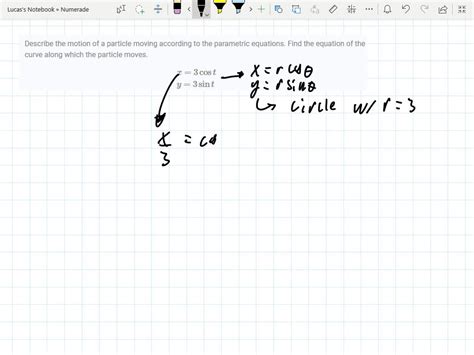 Lucas's Notebook » Numerade
Describe the motion of a particle moving according to the parametric equations. Find the equation of the
curve along which the particle moves.
x = 3 cos t
y = 3 sin t
x = r cos θ
y = r sin θ
↳ circle w/ r = 3
x/3 = cos